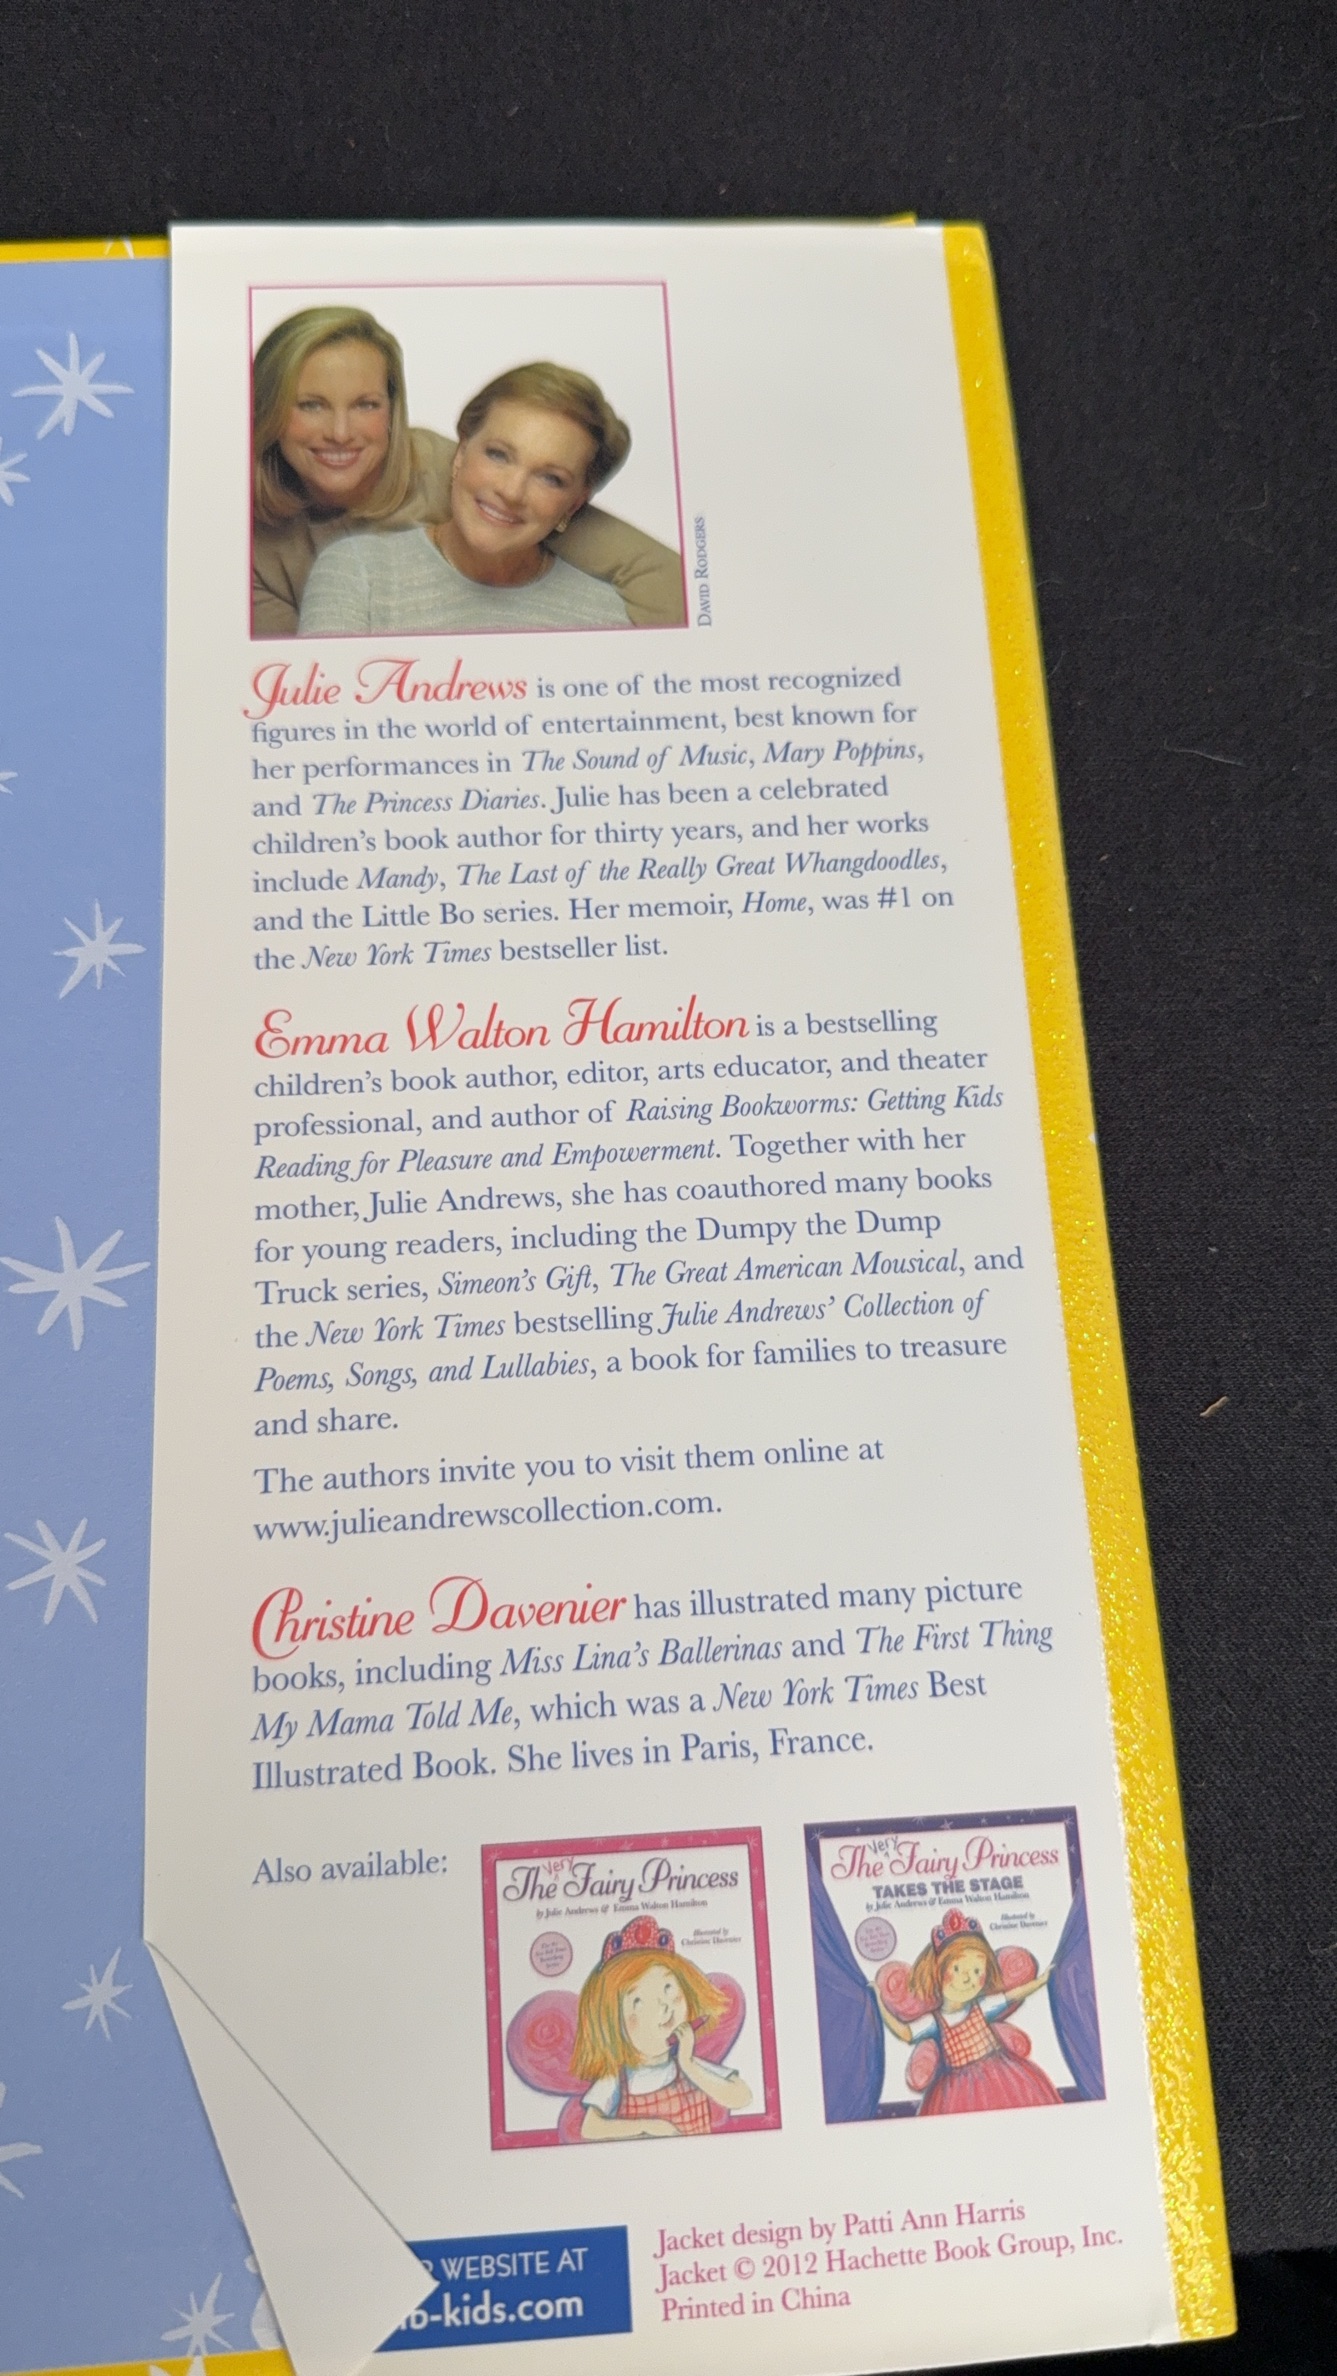 DAVID RODGERS
Julie Andrews is one of the most recognized
figures in the world of entertainment, best known for
her performances in The Sound of Music, Mary Poppins,
and The Princess Diaries. Julie has been a celebrated
children's book author for thirty years, and her works
include Mandy, The Last of the Really Great Whangdoodles,
and the Little Bo series. Her memoir, Home, was #1 on
the New York Times bestseller list.
Emma Walton Hamilton is a bestselling
children's book author, editor, arts educator, and theater
professional, and author of Raising Bookworms: Getting Kids
Reading for Pleasure and Empowerment. Together with her
mother, Julie Andrews, she has coauthored many books
for young readers, including the Dumpy the Dump
Truck series, Simeon's Gift, The Great American Mousical, and
the New York Times bestselling Julie Andrews' Collection of
Poems, Songs, and Lullabies, a book for families to treasure
and share.
The authors invite you to visit them online at
www.julieandrewscollection.com.
Christine Davenier has illustrated many picture
books, including Miss Lina's Ballerinas and The First Thing
My Mama Told Me, which was a New York Times Best
Illustrated Book. She lives in Paris, France.
Also available:
The Very Fairy Princess
by Julie Andrews & Emma Walton Hamilton
Illustrated by
Christine Davenier
The Very Fairy Princess
TAKES THE STAGE
by Julie Andrews & Emma Walton Hamilton
Illustrated by
Christine Davenier
WEBSITE AT
b-kids.com
Jacket design by Patti Ann Harris
Jacket © 2012 Hachette Book Group, Inc.
Printed in China